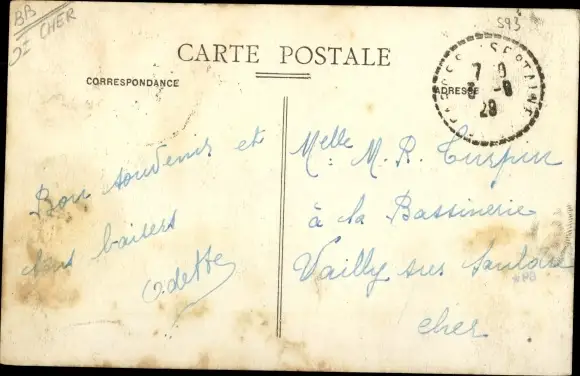 BB
CHER
593
CARTE POSTALE
CORRESPONDANCE
ADRESSE
7
3 - 8
29
Bon souvenir et
baisers
Odette
Melle M. R. Turpin
à la Bassinerie
Vailly sur Sauldre
cher